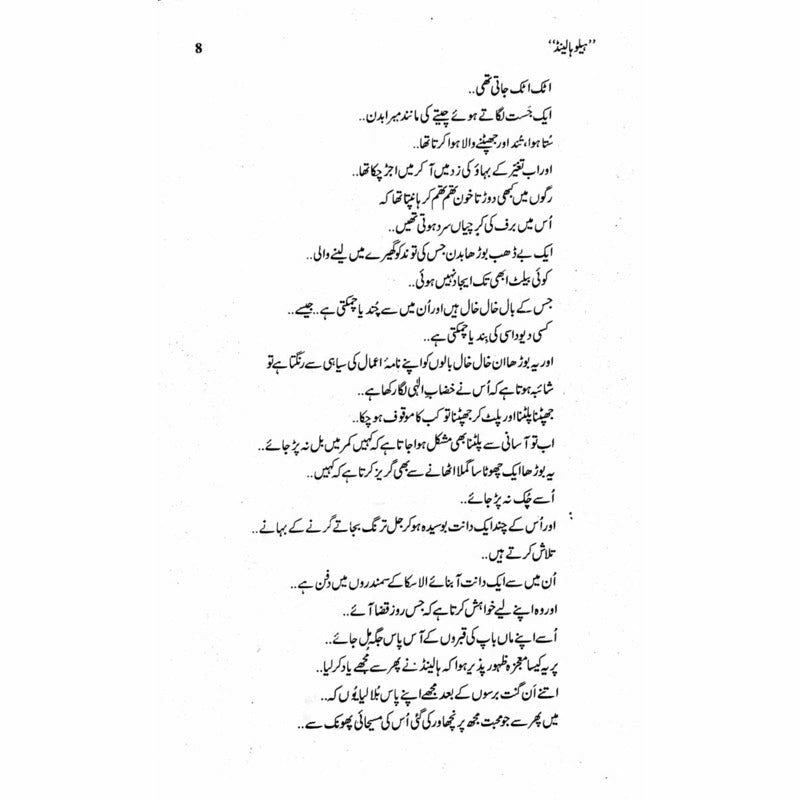 8
’’ہیلو ہالینڈ‘‘
اٹک اٹک جاتی تھی..
ایک جَست لگاتے ہوئے چیتے کی مانند میرا بدن..
سُتا ہوا، تُند اور جھپٹنے والا ہوا کرتا تھا..
اور اب تغیّر کے بہاؤ کی زد میں آ کر میں اجڑ چکا تھا..
رگوں میں کبھی دوڑتا خون تھم تھم کر ہانپتا تھا کہ
اُس میں برف کی کرچیاں سرد ہوتی تھیں..
ایک بے ڈھب بوڑھا بدن جس کی توند کو گھیرے میں لینے والی..
کوئی بیلٹ ابھی تک ایجاد نہیں ہوئی..
جس کے بال خال خال ہیں اور اُن میں سے چُندیا چمکتی ہے.. جیسے..
کسی دیوداسی کی بِندیا چمکتی ہے..
اور یہ بوڑھا ان خال خال بالوں کو اپنے نامۂ اعمال کی سیاہی سے رنگتا ہے تو
شائبہ ہوتا ہے کہ اُس نے خضابِ الٰہی لگا رکھا ہے..
جھپٹنا پلٹنا اور پلٹ کر جھپٹنا تو کب کا موقوف ہو چکا..
اب تو آسانی سے پلٹنا بھی مشکل ہوا جاتا ہے کہ کہیں کمر میں بل نہ پڑ جائے..
یہ بوڑھا ایک چھوٹا سا گملا اٹھانے سے بھی گریز کرتا ہے کہ کہیں..
اُسے چُک نہ پڑ جائے..
اور اُس کے چند ایک دانت بوسیدہ ہو کر جل ترنگ بجاتے گرنے کے بہانے..
تلاش کرتے ہیں..
اُن میں سے ایک دانت آبنائے الاسکا کے سمندروں میں دفن ہے..
اور وہ اپنے لیے خواہش کرتا ہے کہ جس روز قضا آئے..
اُسے اپنے ماں باپ کی قبروں کے آس پاس جگہ مِل جائے..
پر یہ کیسا معجزہ ظہور پذیر ہوا کہ ہالینڈ نے پھر سے مُجھے یاد کر لیا..
اتنے اَن گنت برسوں کے بعد مجھے اپنے پاس بُلا لیا یُوں کہ..
میں پھر سے جو محبت مجھ پر نچھاور کی گئی اُس کی مسیحائی پھونک سے..